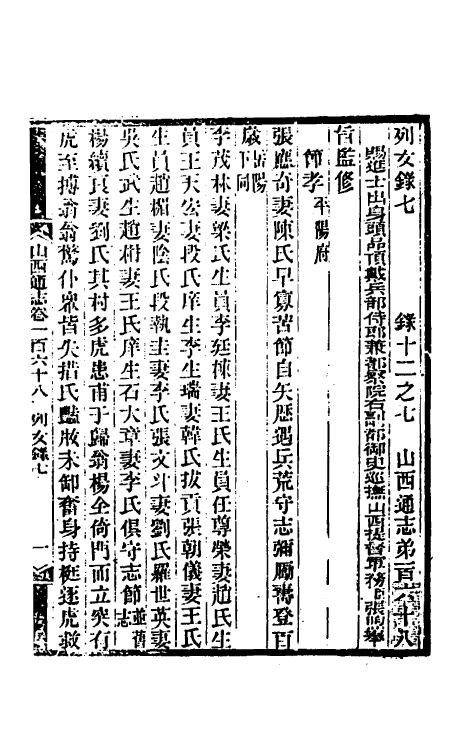 列女錄七　錄十二之七　山西通志第一百六十八
賜進士出身頭品頂戴兵部侍郎兼都察院右副都御史巡撫山西提督軍務　張煦舉
旨監修
節孝平陽府
張應奇妻陳氏早寡苦節自矢歷遇兵荒守志彌勵壽登百
歲岳陽下同
李茂林妻梁氏生員李廷棟妻王氏生員任尊榮妻趙氏生
員王天公妻段氏庠生李生瑞妻韓氏拔貢張朝儀妻王氏
生員趙楣妻陰氏段執圭妻李氏張文斗妻劉氏羅世英妻
吳氏武生趙楷妻王氏庠生石大章妻李氏俱守志節並舊志
楊續貞妻劉氏其村多虎患甫于歸翁楊全倚門而立突有
虎至搏翁翁驚仆眾皆失措氏豔妝未卸奮身持梃逐虎救
山西通志卷一百六十八　列女錄七　一